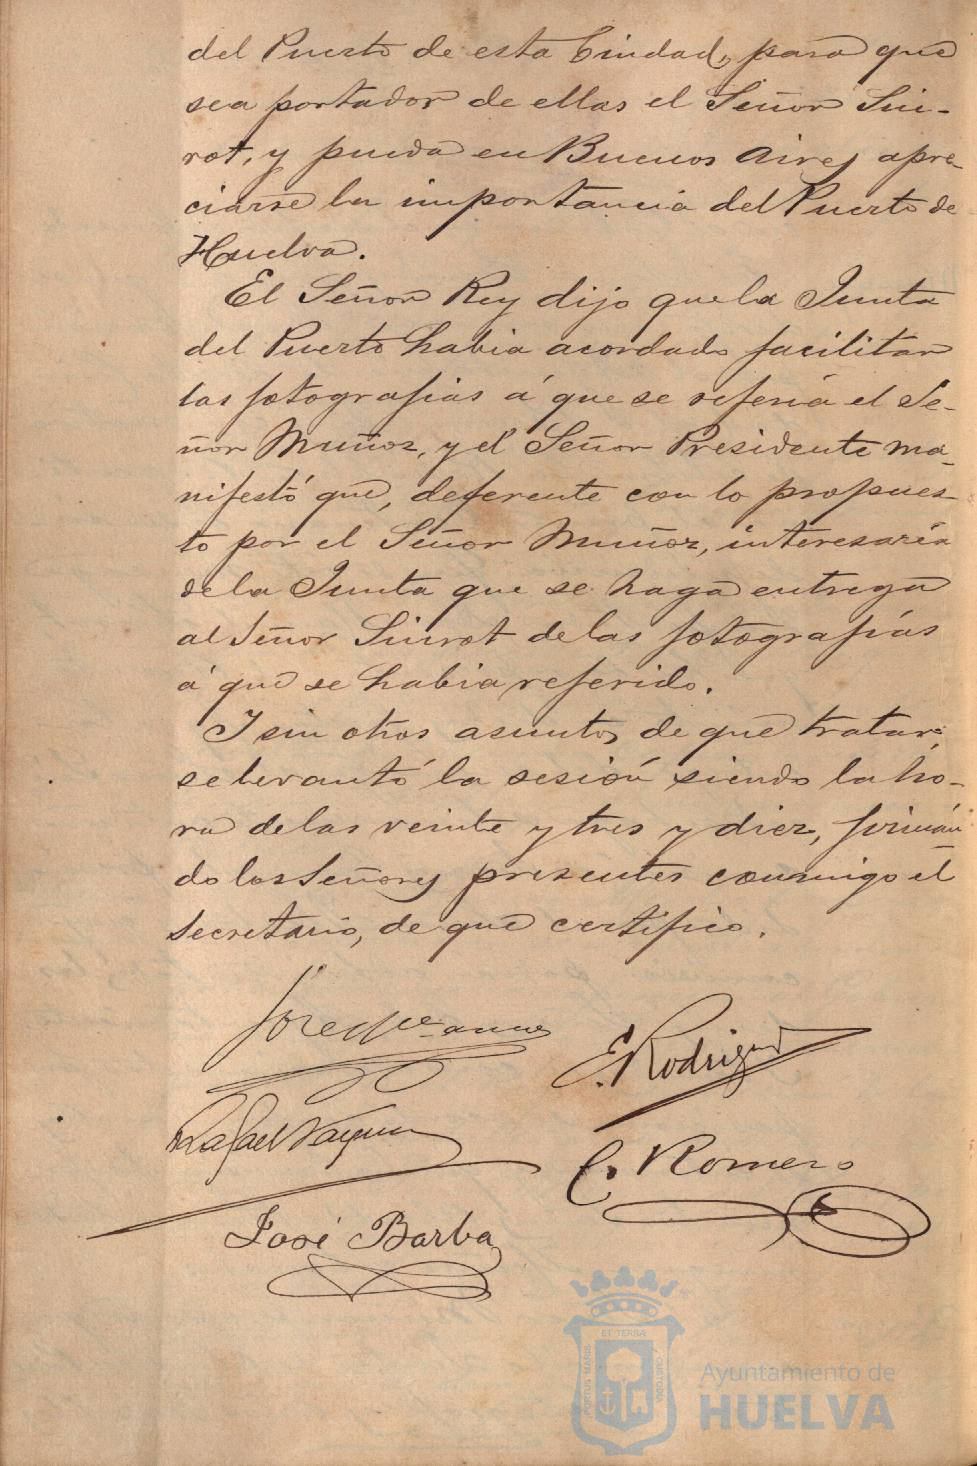 del Puerto de esta Ciudad, para que
sea portador de ellas el Señor Siu-
rot, y pueda en Buenos Aires apre-
ciarse la importancia del Puerto de
Huelva.
El Señor Rey dijo que la Junta
del Puerto habia acordado facilitar
las fotografias á que se referia el Se-
ñor Muñoz, y el Señor Presidente ma-
nifestó que, deferente con lo propues-
to por el Señor Muñoz, interesaria
de la Junta que se haga entrega
al Señor Siurot de las fotografías
á que se habia referido.
Y sin otros asuntos de que tratar,
se levantó la sesión siendo la ho-
ra de las veinte y tres y diez, firmán-
do los Señores presentes conmigo el
Secretario, de que certifico.
E. Rodriguez
Rafael Vazquez
C. Romero
José Barba
PORTUS MARIS ET TERRÆ CUSTODIA
Ayuntamiento de
HUELVA